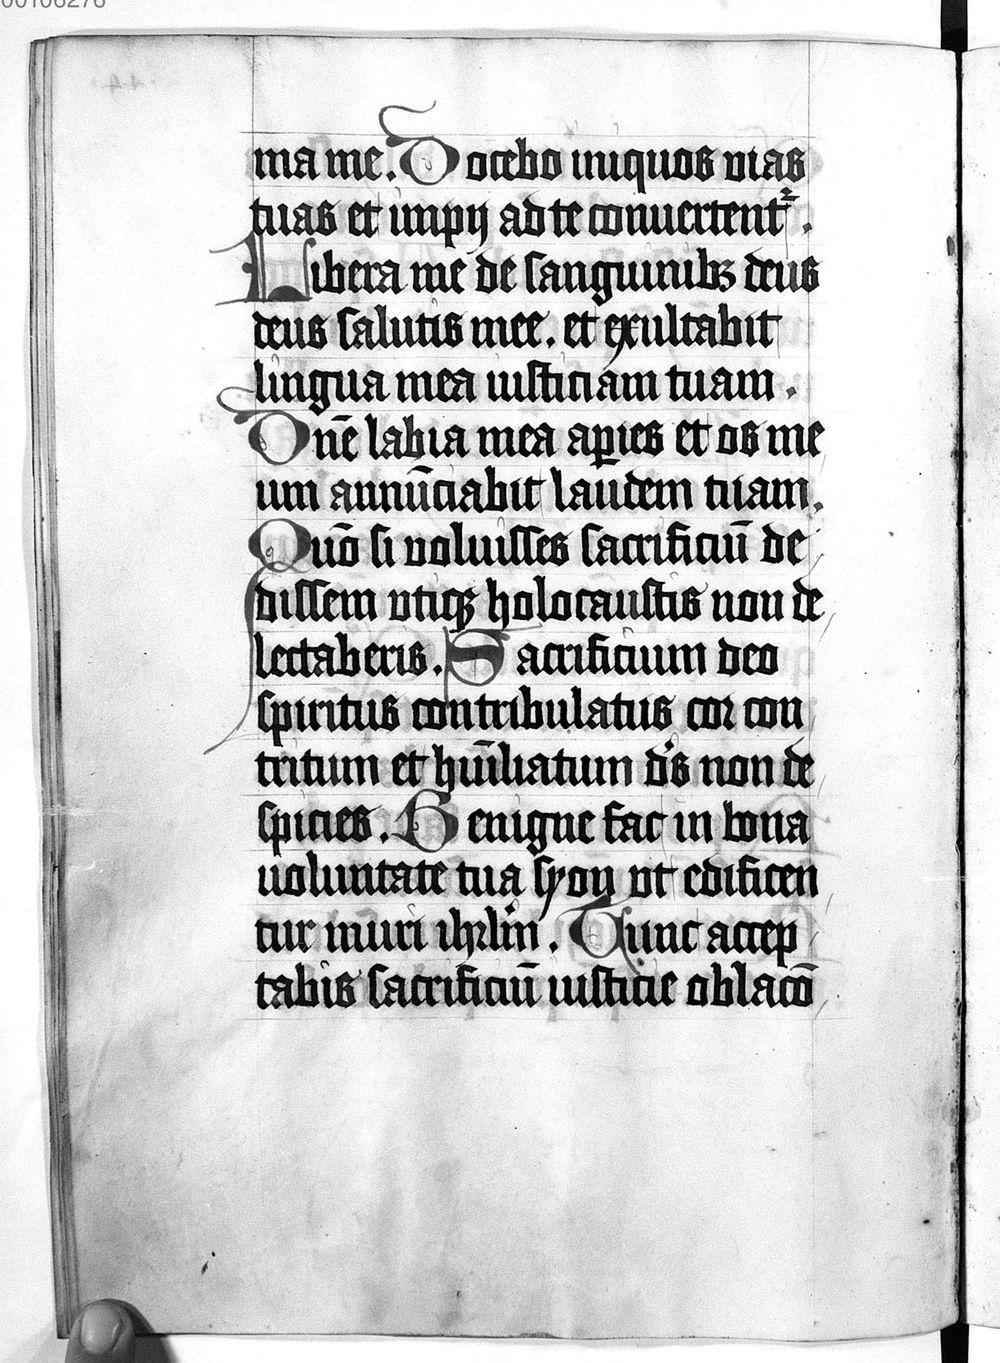 00106276
ma me. Docebo iniquos vias
tuas et impij ad te conuertentꝛ.
Libera me de sanguinibꝫ deus
deus salutis mee. et exultabit
lingua mea iusticiam tuam.
Dnē labia mea aꝑies et os me
um annūciabit laudem tuam.
Quō si voluisses sacrificiū de
dissem vtiqꝫ holocaustis non de
lectaberis. Sacrificium deo
spiritus contribulatus cor con
tritum et hūiliatum d's non de
spicies. Benigne fac in bona
uoluntate tua syon vt edificen
tur muri ihrlm̄. Tunc accep
tabis sacrificiū iusticie oblacō